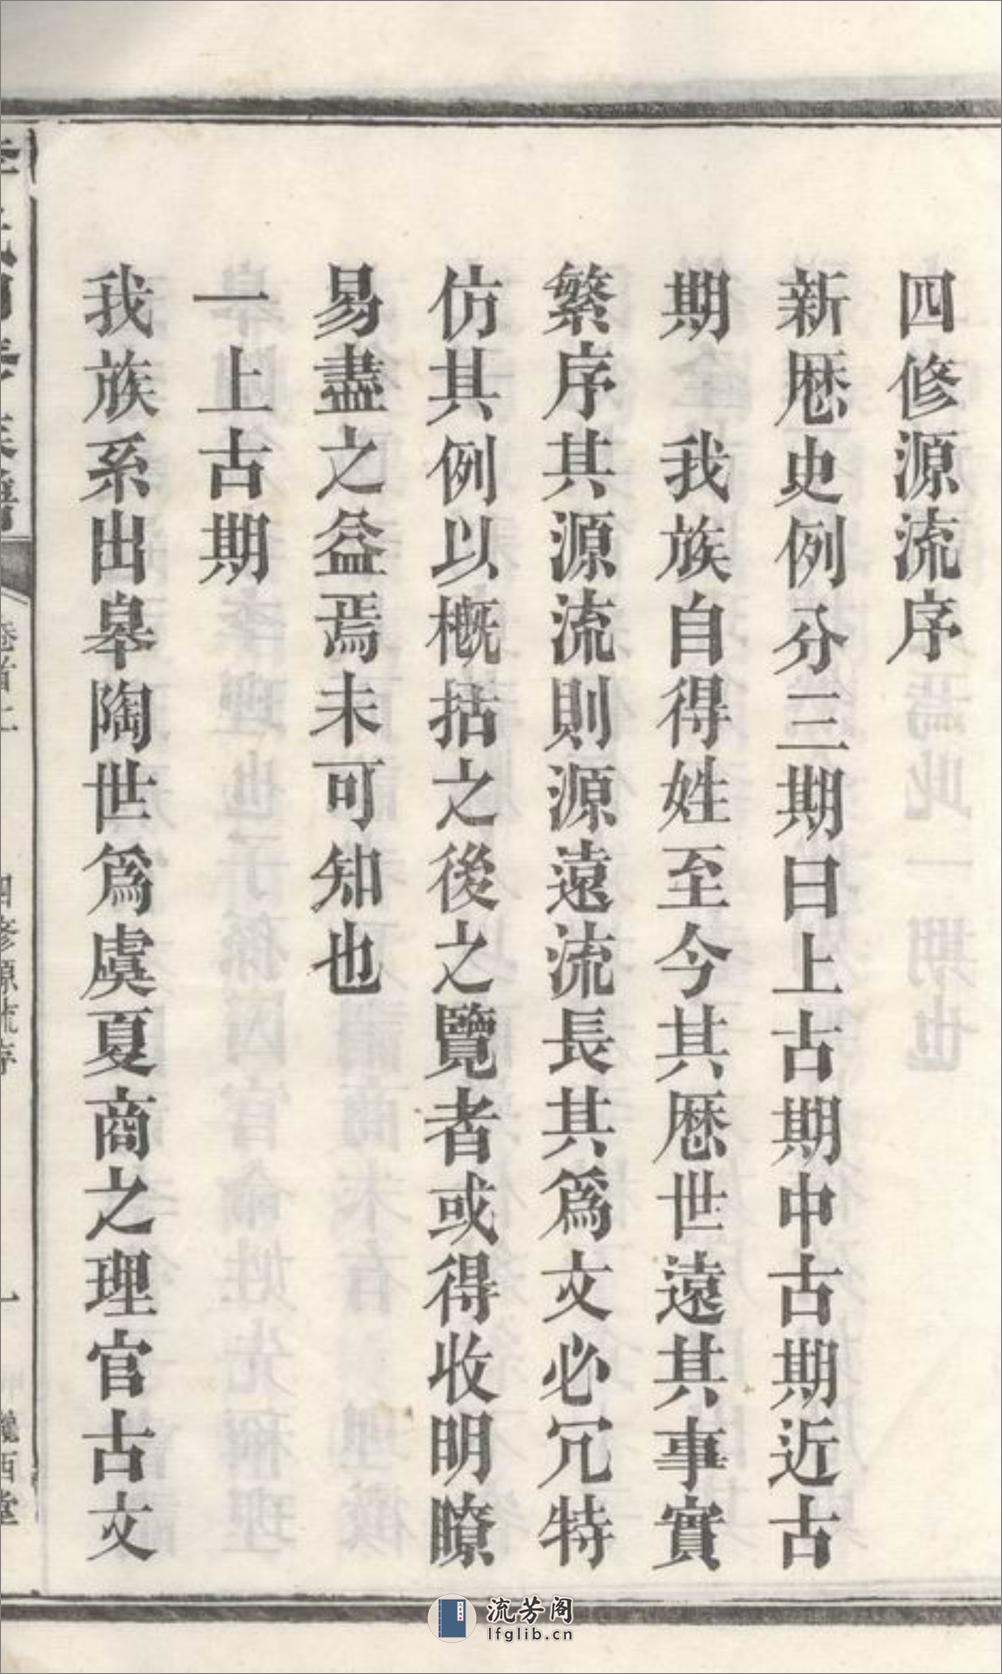 四修源流序
新厯史例分三期曰上古期中古期近古
期　我族自得姓至今其厯世遠其事實
繁序其源流則源遠流長其爲文必冗特
仿其例以概括之後之覽者或得收明瞭
易盡之益焉未可知也
一上古期
我族系出皋陶世爲虞夏商之理官古文
卷首上
四修源流序
一
隴西堂
流芳阁
lfglib.cn